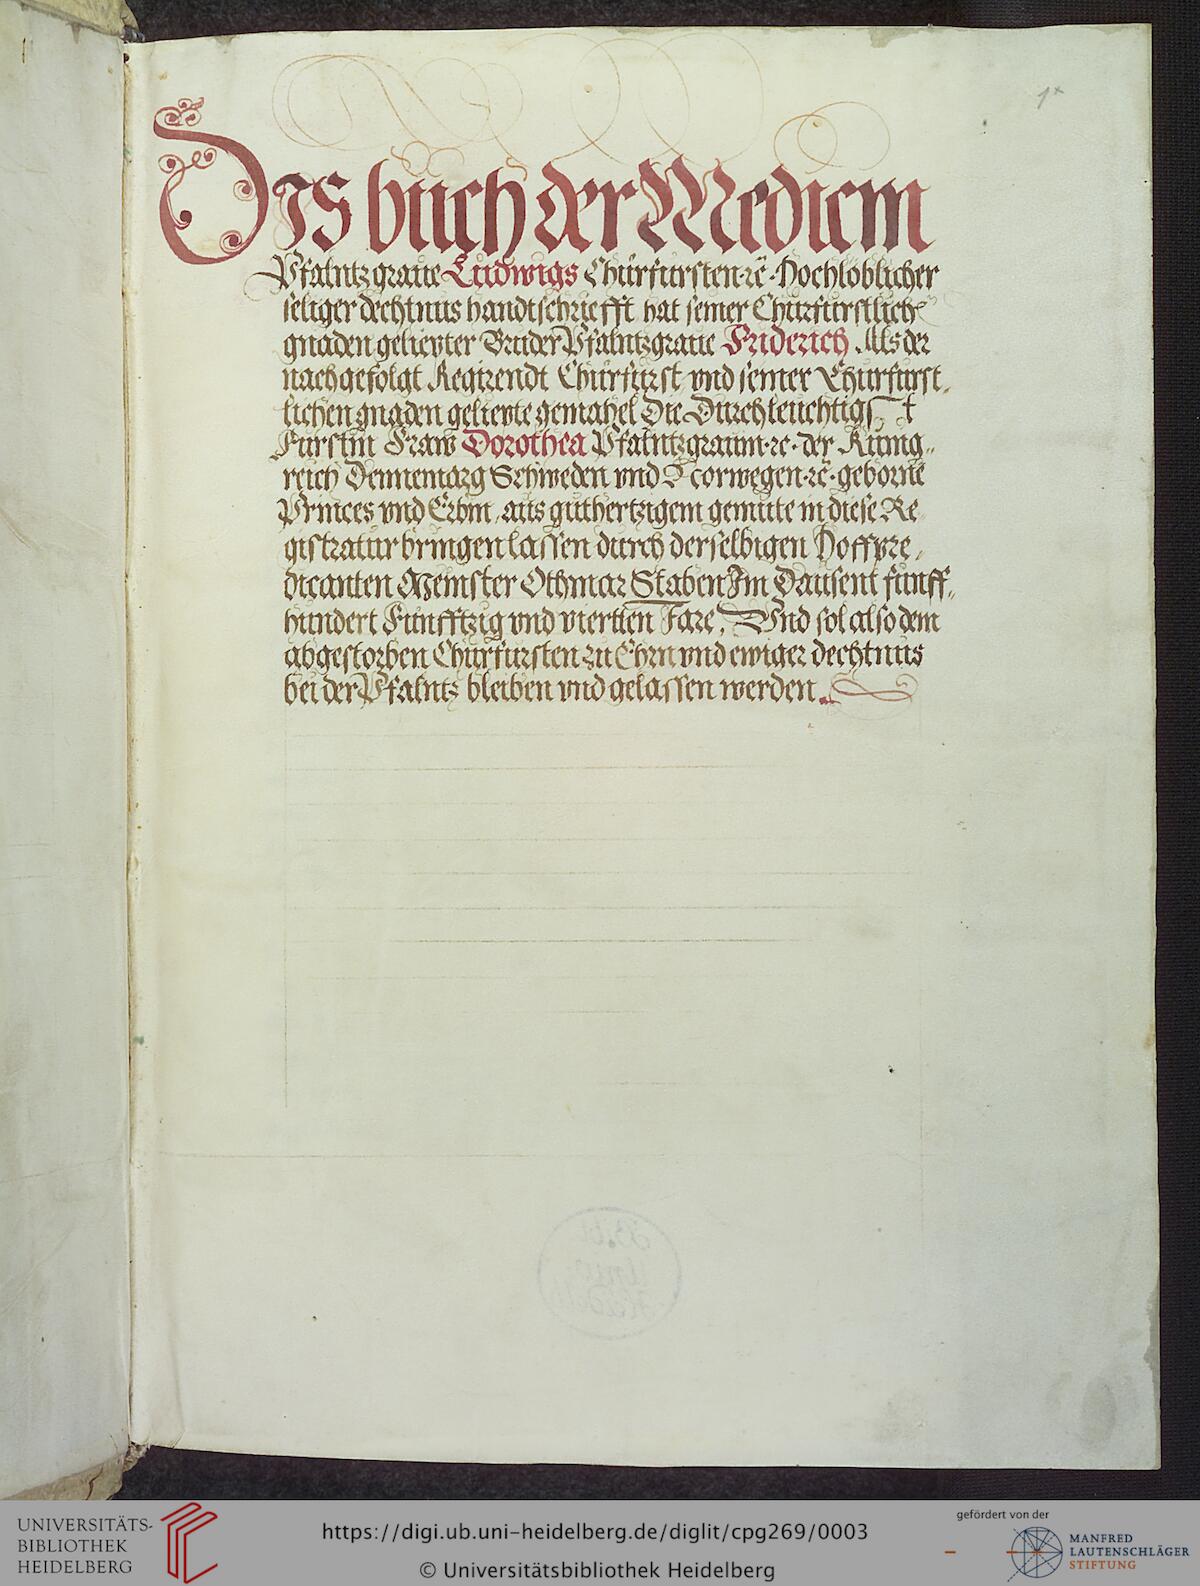 1*
Dis buch der Medicin
Pfalntzgraue Ludwigs Churfursten ꝛc̄. Hochloblicher
seliger dechtnus handtschriefft hat seiner Churfurstlich
gnaden geliepter Bruder Pfalntzgraue Friderich Als der
nachgefolgt Regirendt Churfurst vnd seiner Churfurst⸗
lichen gnaden geliepte gemahel Die Durchleuchtigst
Furstin Fraw Dorothea Pfalntzgrauin ꝛc. der Kunig⸗
reich Dennemarg Schweden vnd Norwegen ꝛc̄. geborne
Princes vnd Erbin, aus guthertzigem gemute in diese Re
gistratur bringen lassen durch derselbigen Hoffpre⸗
dicanten Meinster Othmar Staben Im Dausent funff⸗
hundert Funfftzig vnd viertten Jare, Vnd sol also dem
abgestorben Churfursten zu Ehrn vnd ewiger dechtnus
bei der Pfalntz bleiben vnd gelassen werden.
UNIVERSITÄTS-
BIBLIOTHEK
HEIDELBERG
https://digi.ub.uni-heidelberg.de/diglit/cpg269/0003
© Universitätsbibliothek Heidelberg
gefördert von der
MANFRED
LAUTENSCHLÄGER
STIFTUNG